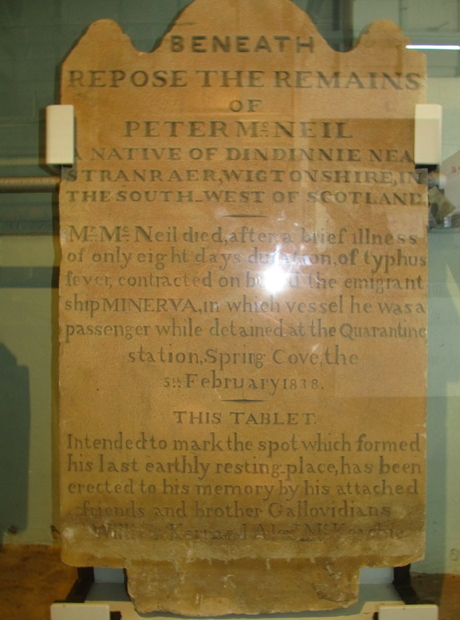 BENEATH
REPOSE THE REMAINS
OF
PETER Mc NEIL
A NATIVE OF DINDINNIE NEA
STRANRAER, WIGTONSHIRE, IN
THE SOUTH-WEST OF SCOTLAND
Mr. Mc Neil died, after a brief illness
of only eight days duration, of typhus
fever, contracted on board the emigrant
ship MINERVA, in which vessel he was a
passenger while detained at the Quarantine
station, Spring Cove, the
5th February 1838.
THIS TABLET
Intended to mark the spot which formed
his last earthly resting-place, has been
erected to his memory by his attached
friends and brother Gallovidians